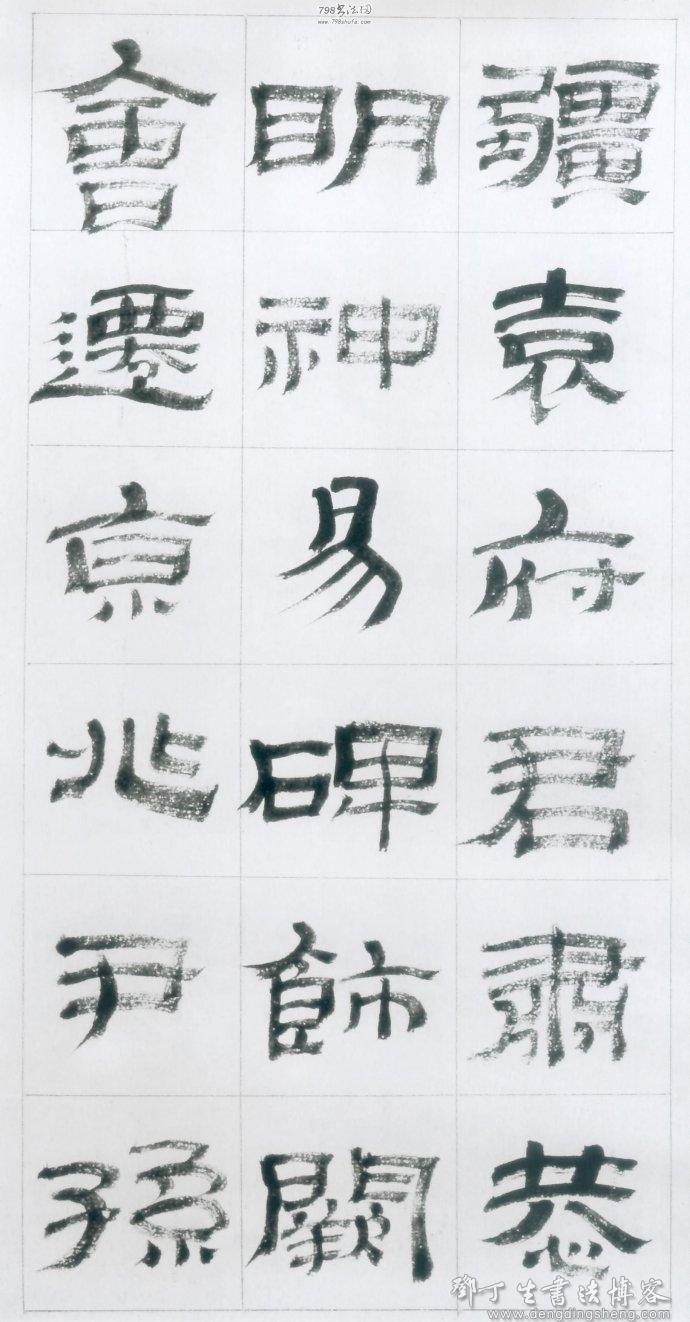 798书法网
www.798shufa.com
疆袁府君肅恭
明神易碑飾闕
會遷京兆尹孫
鄧丁生書法博客
www.dengdingsheng.com